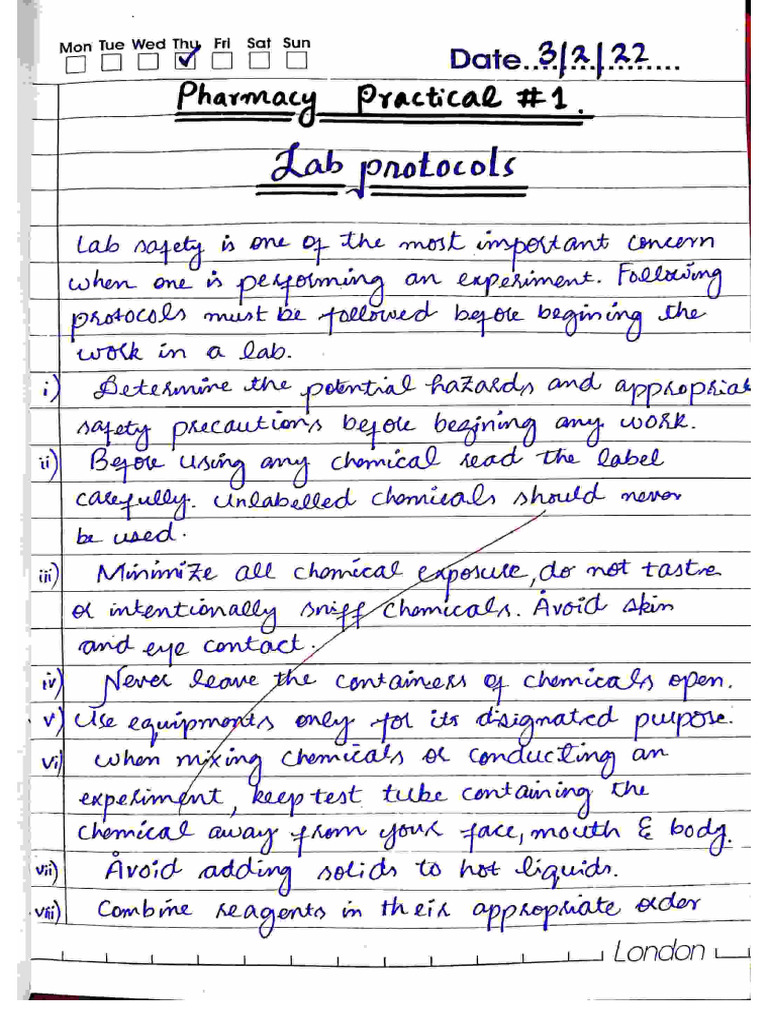 Mon Tue Wed Thu Fri Sat Sun
Date 3/2/22
Pharmacy Practical #1.
Lab protocols
Lab safety is one of the most important concern
when one is performing an experiment. Following
protocols must be followed before begining the
work in a lab.
i) Determine the potential hazards and appropriat
safety precautions before begining any work.
ii) Before using any chemical read the label
carefully. Unlabelled chemicals should never
be used.
iii) Minimize all chemical exposure, do not tastre
or intentionally sniff chemicals. Avoid skin
and eye contact.
iv) Never leave the containers of chemicals open.
v) Use equipments only for its disignated purpose.
vi) when mixing chemicals or conducting an
experiment, keep test tube containing the
chemical away from your face, mouth & body.
vii) Avoid adding solids to hot liquids.
viii) Combine reagents in their appropriate order
London